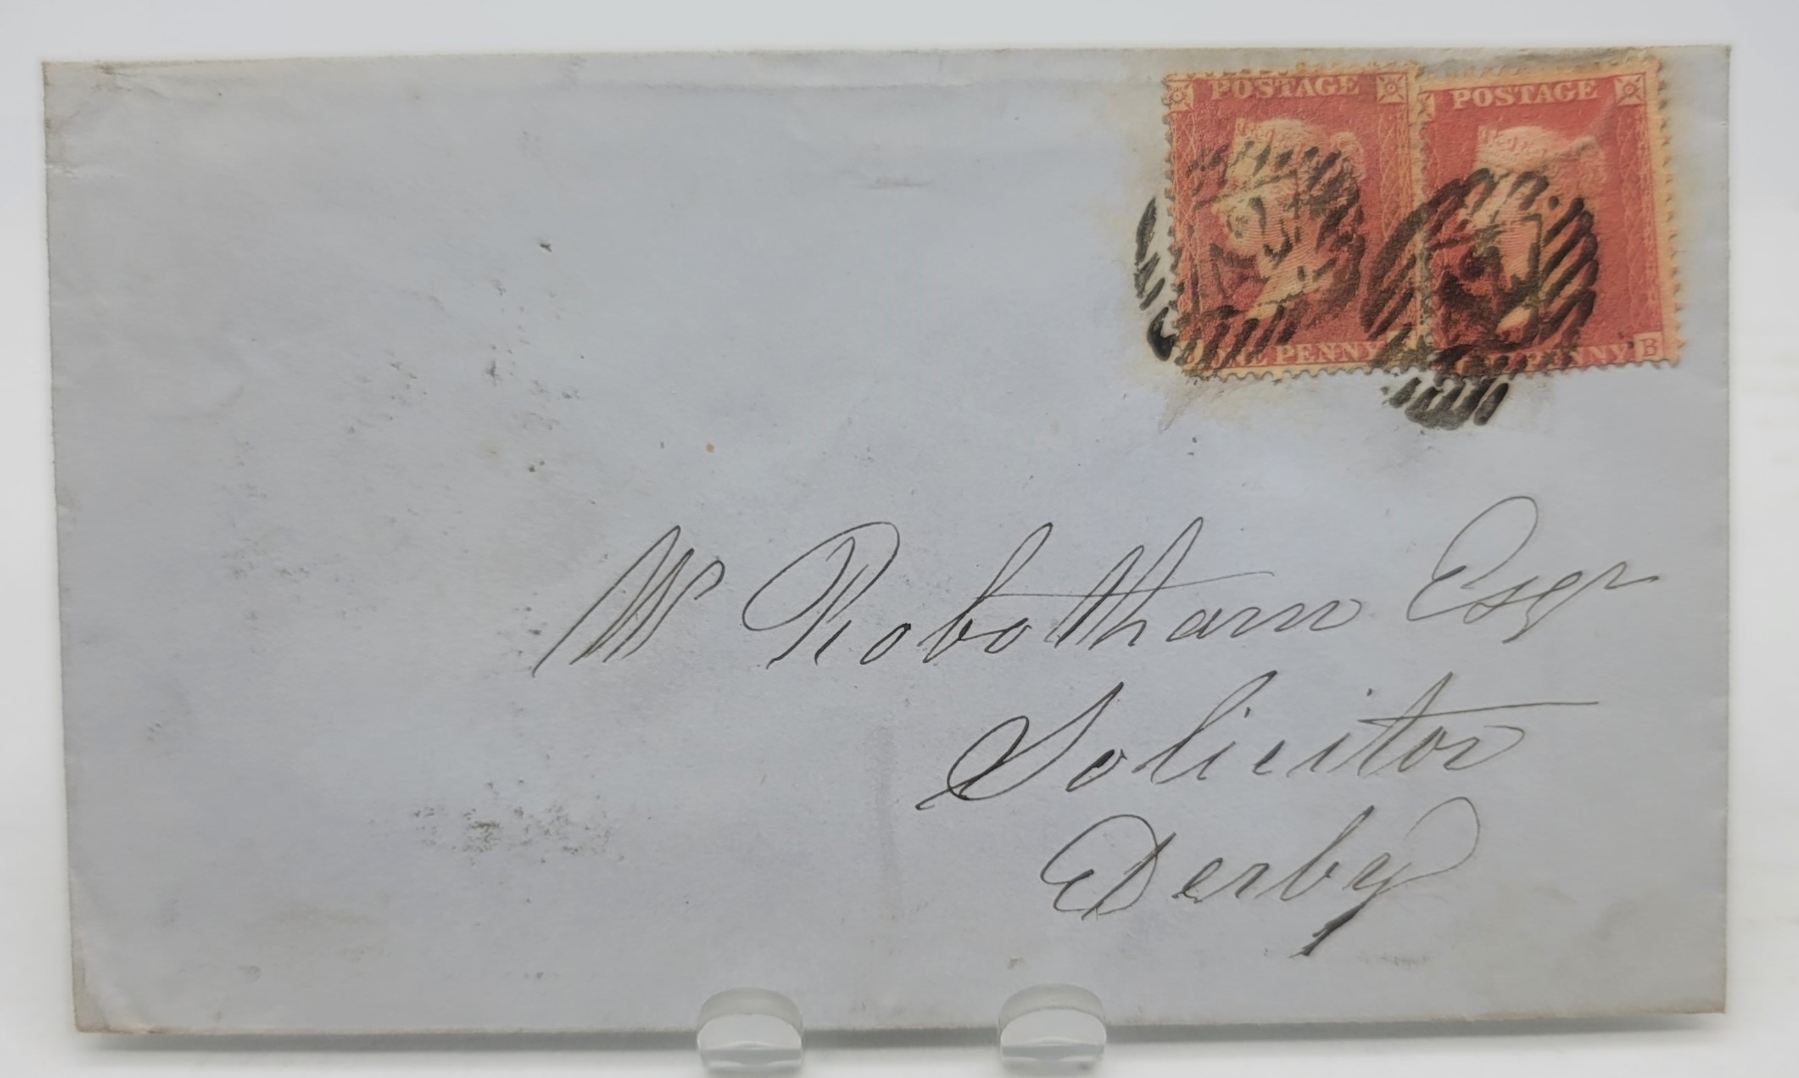 POSTAGE POSTAGE
PENNY PENNY B
W Robotham Esqr
Solicitor
Derby